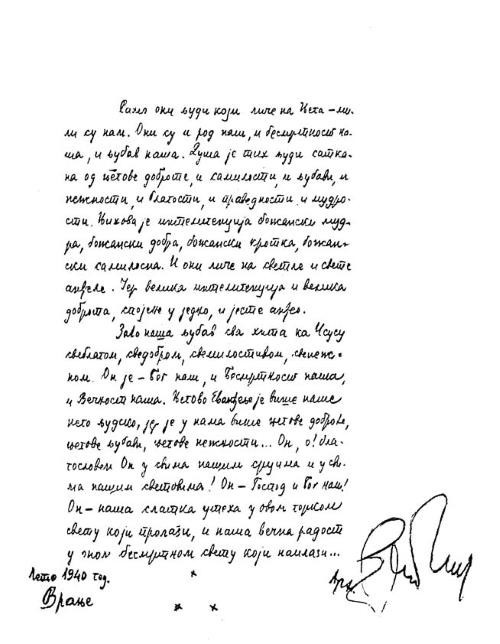 Само они људи који личе на Исуса – ми-
ли су нам. Они су и род наш, и бесмртност на-
ша, и љубав наша. Душа је тих људи сатка-
на од његове доброте, и самилости, и љубави, и
нежности, и благости, и праведности, и мудро-
сти. Њихова је интелигенција божански муд-
ра, божански добра, божански кротка, божан-
ски самилосна. И они личе на светле и свете
анђеле. Јер велика интелигенција и велика
доброта, спојене у једно, и јесте анђео.
Зато наша љубав сва хита ка Исусу
свеблагом, сведобром, свемилостивом, свенеж-
ном. Он је – Бог наш, и Бесмртност наша,
и Вечност наша. Његово Еванђеље је више наше
него људско, јер је у нама више његове доброте,
његове љубави, његове нежности... Он, о! бла-
гословен Он у свима нашим срцима и у сви-
ма нашим световима! Он – Господ и Бог наш!
Он – наша слатка утеха у овом горком
свету који пролази, и наша вечна радост
у оном бесмртном свету који наилази...
Лето 1940 год.
Врање